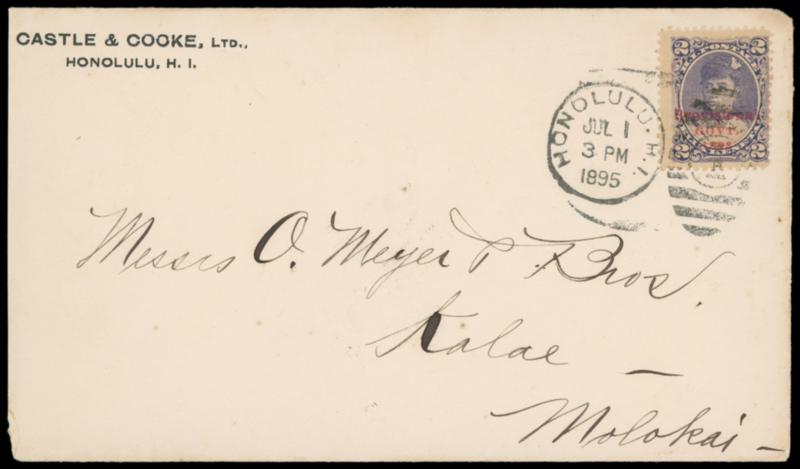 CASTLE & COOKE, LTD.,
HONOLULU, H. I.
HONOLULU. H. I.
JUL 1
3 PM
1895
2 2
Provisional
GOVT.
1893
2 2
Messrs O. Meyer & Bros.
Kalae —
Molokai —